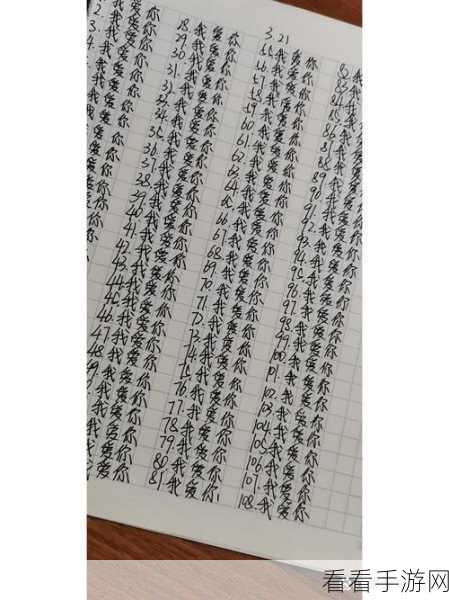 3.21
爱你
2. 我爱你
3. 我爱你
4. 我爱你
28. 我爱你
29. 我爱你
30. 我爱你
31. 我爱你
32. 我爱你
33. 我爱你
34. 我爱你
35. 我爱你
36. 我爱你
37. 我爱你
38. 我爱你
39. 我爱你
40. 我爱你
41. 我爱你
42. 我爱你
43. 我爱你
44. 我爱你
45. 我爱你
46. 我爱你
47. 我爱你
48. 我爱你
49. 我爱你
我爱你
我爱你
我爱你
爱你
爱你
55. 我爱你
56. 我爱你
57. 我爱你
58. 我爱你
59. 我爱你
60. 我爱你
61. 我爱你
62. 我爱你
63. 我爱你
64. 我爱你
65. 我爱你
66. 我爱你
67. 我爱你
68. 我爱你
69. 我爱你
70. 我爱你
71. 我爱你
72. 我爱你
73. 我爱你
74. 我爱你
75. 我爱你
76. 我爱你
77. 我爱你
78. 我爱你
79. 我爱你
80. 我爱你
81. 我爱你
82. 我
83. 我
84. 我
85. 我
86. 我爱
87. 我爱
88. 我爱
89. 我爱
90. 我爱
91. 我爱
92. 我爱
93. 我爱你
94. 我爱你
95. 我爱你
96. 我爱你
97. 我爱你
98. 我爱你
99. 我爱你
100. 我爱你
101. 我爱你
102. 我爱你
103. 我爱你
104. 我爱你
105. 我爱你
106. 我爱你
107. 我爱你
108. 我爱你
看看手游网